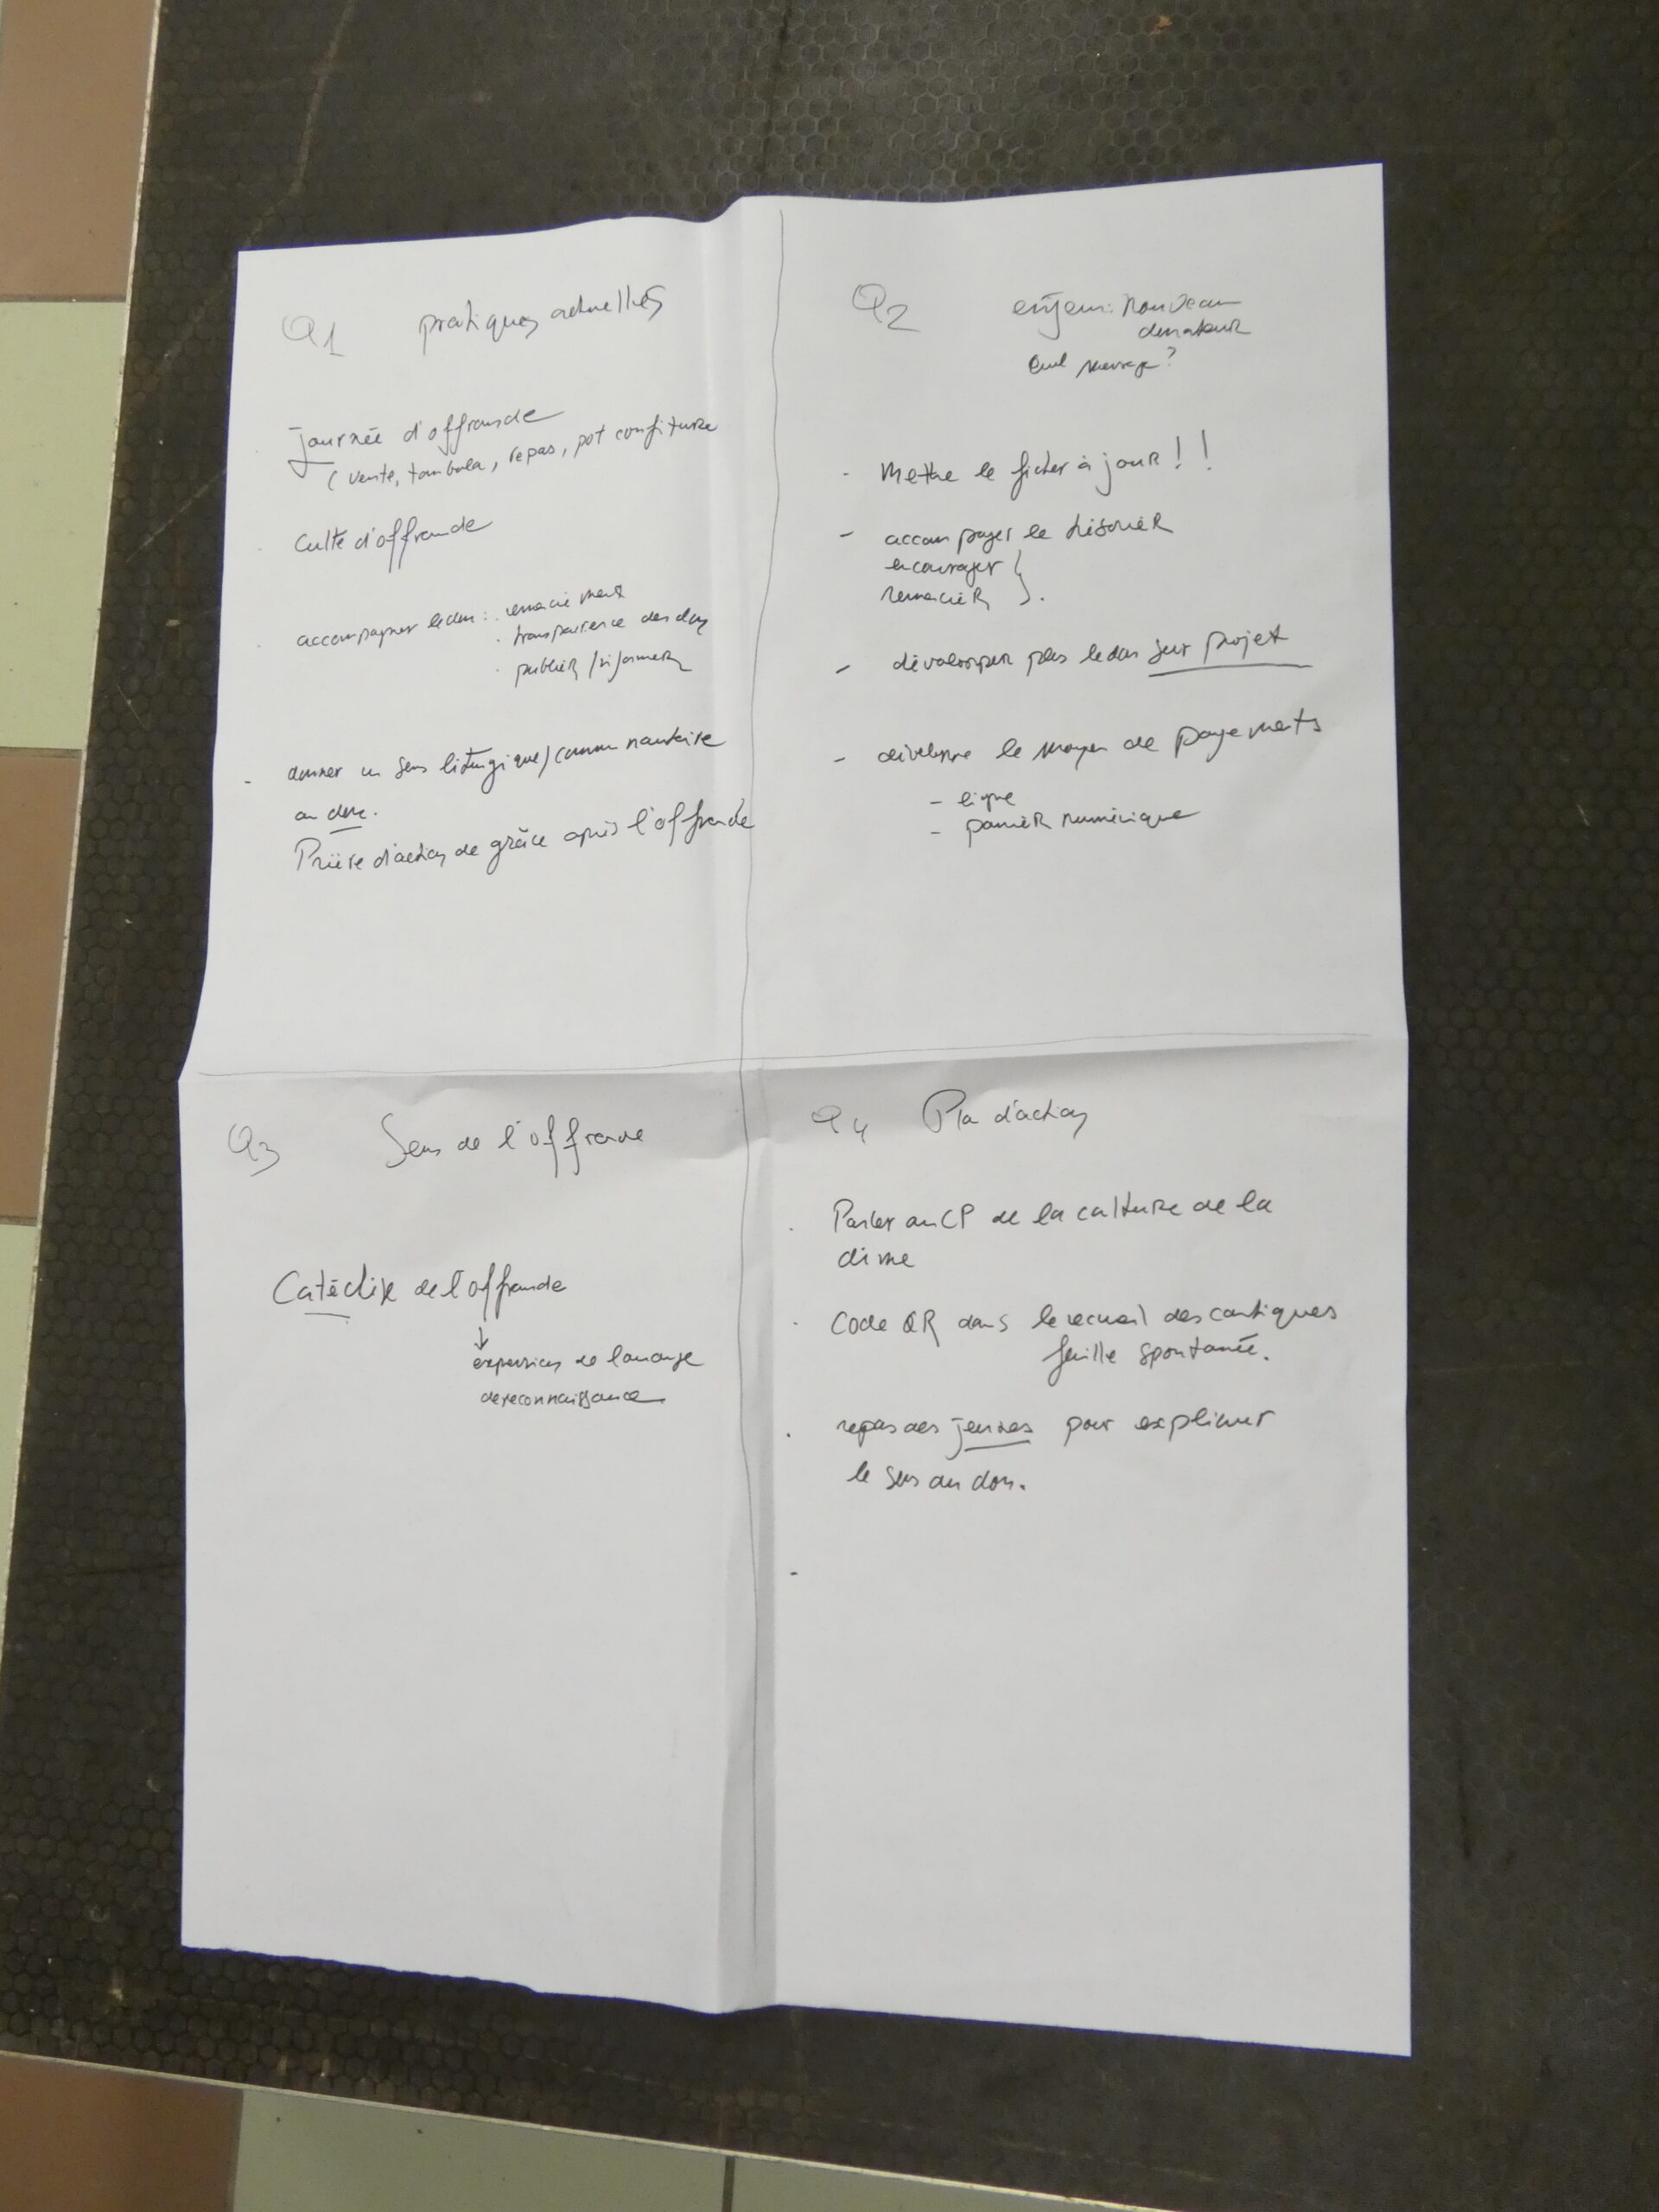 Q1 pratiques actuelles
journée d'offrande
( vente, tombola, repas, pot confiture
culte d'offrande
accompagner le don : . remerciement
. transparence des dons
. publier / informer
- donner un sens liturgique / communautaire
au don.
Prière d'action de grâce après l'offrande
Q2 enjeu: nouveau
donateur
Quel message ?
- Mettre le fichier à jour ! !
- accompagner le trésorier
encourager }
remercier } .
- développer plus le don sur projet
- développer le moyen de payements
- ligne
- panier numérique
Q3 Sens de l'offrande
Catéchèse de l'offrande
↓
expression de louange
de reconnaissance
Q4 Plan d'action
. Parler au CP de la culture de la
dime
. Code QR dans le recueil des cantiques
feuille spontanée.
. repas des jeunes pour expliquer
le sens du don.
-